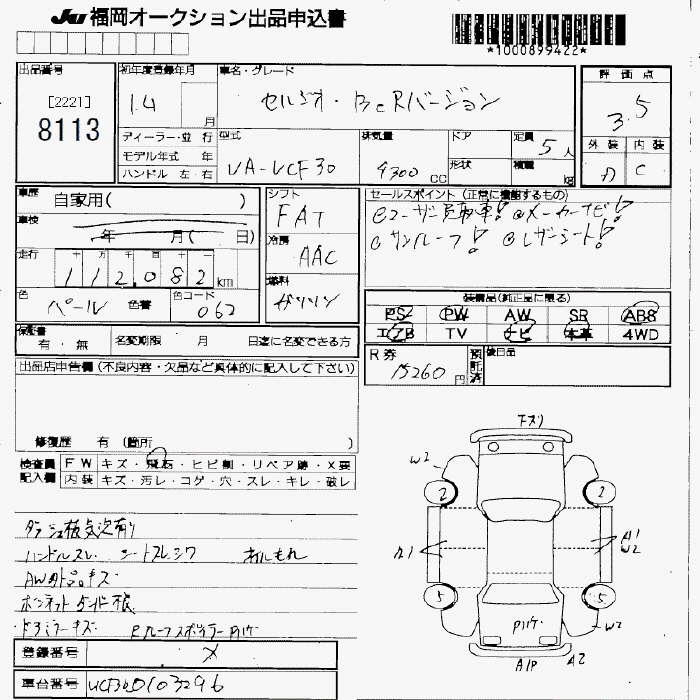 JU 福岡オークション出品申込書
*1000899422*
出品番号
[2221]
8113
初年度登録年月
14
月
車名・グレード
セルシオ・BeRバージョン
評価点
3.5
外装 内装
C
ディーラー・並行
モデル年式 年
ハンドル 左・右
型式
UA-UCF30
排気量
4300 CC
ドア
形状
定員
5人
積量
kg
車歴
自家用( )
車検
年 月( 日)
走行
十 万 千 百 十 一
112,082 km
色
パール
色替
色コード
062
シフト
FAT
冷房
AAC
燃料
ガソリン
セールスポイント(正常に機能するもの)
◎ユーザー買取車! ◎メーカーナビ!
◎サンルーフ! ◎レザーシート!
装備品(純正品に限る)
PS PW AW SR ABS
エアB TV ナビ 本革 4WD
保証書
有・無
名変期限 月 日迄に名変できる方
R券
15260 円
預託済
後日品
出品店申告欄(不良内容・欠品など具体的に記入して下さい)
修復歴 有(箇所 )
検査員記入欄
FW キズ・飛石・ヒビ割・リペア跡・X要
内装 キズ・汚レ・コゲ・穴・スレ・キレ・破レ
ハンドルスレ シートスレシワ オイルもれ
AW外品キズ
ドアミラーキズ
登録番号
メ
車台番号
UCF30 0103296
下スリ
W2
2
2
A1
A1
W2
5
5
W2
A2